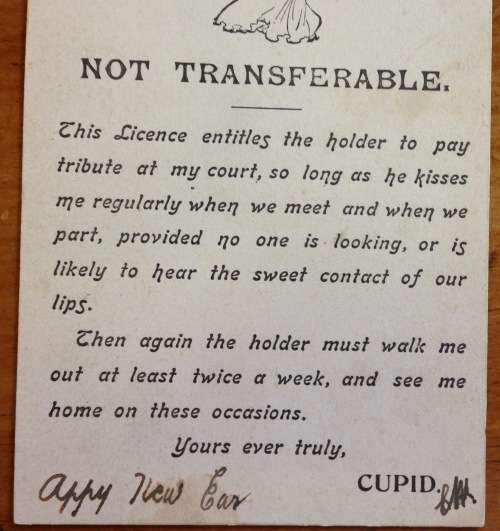 NOT TRANSFERABLE.
This Licence entitles the holder to pay
tribute at my court, so long as he kisses
me regularly when we meet and when we
part, provided no one is looking, or is
likely to hear the sweet contact of our
lips.
Then again the holder must walk me
out at least twice a week, and see me
home on these occasions.
Yours ever truly,
CUPID.
Appy New Ear